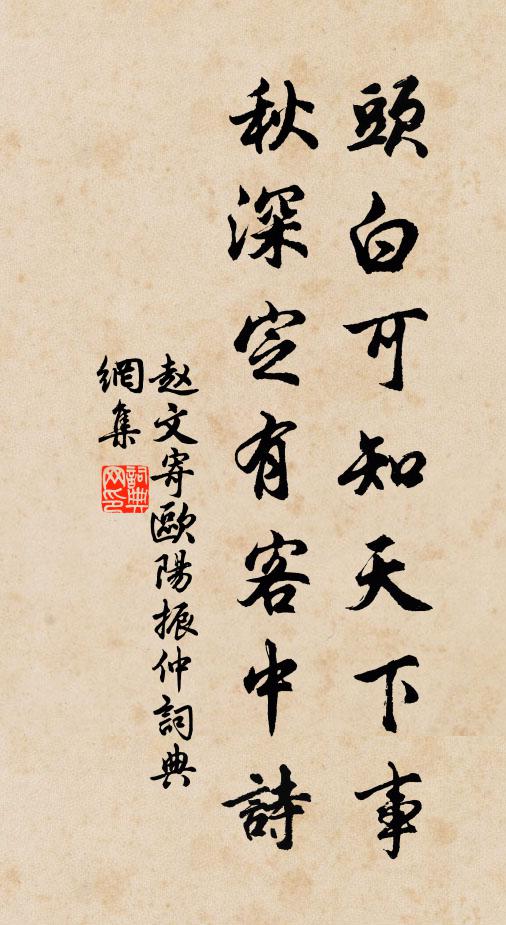 頭白可知天下事
秋深定有客中詩
赵文寄歐陽振仲詞典
網集
詞典网印